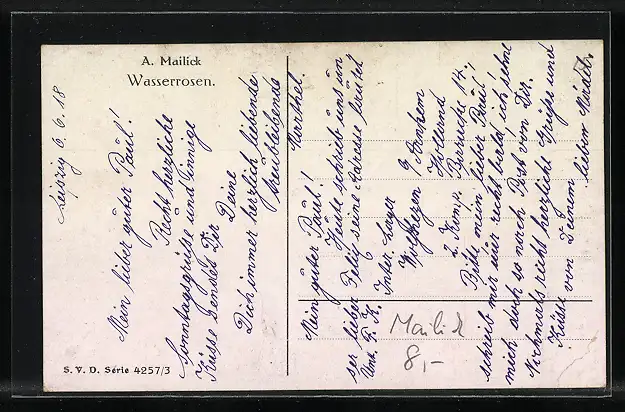 A. Mailick
Wasserrosen.
Leipzig 6. 6. 18
Mein lieber guter Paul!
Recht herzliche
Sonntagsgrüße und innige
Küsse sendet Dir Deine
Dich immer herzlich liebende
treubleibende
Marthel.
Mein guter Paul!
Heute schrieb uns un
ser lieber Felix seine Adresse zuerst
Unt. F. K. Inter Lager
Wolfhezen b/ Arnhem
Holland
2. Komp. Baracke 14.
Bitte mein lieber Paul,
schreib mir nur recht bald, ich sehne
mich doch so nach Post von Dir.
Nochmals recht herzliche Grüße und
Küsse von Deinem lieben Mädel.
S. V. D. Serie 4257/3
Mailick
8,-